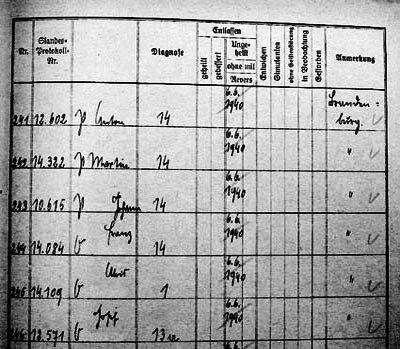 Nr.
Standes-
Protokoll-
Nr.
Diagnose
Entlassen
geheilt
gebessert
Unge-
heilt
ohne mit
Revers
Entwichen
Simulanten
ohne Geistesstörung
in Beobachtung
Gestorben
Anmerkung
241 12.602 P Anton 14 6.6. 1940 Branden=
burg.
242 14.322 P Martin 14 6.6. 1940 "
243 10.615 P Johann 14 6.6. 1940 "
244 14.084 Franz 14 6.6. 1940 "
245 14.109 1 6.6. 1940 "
246 12.571 Josef 13 6.6. 1940 "
6.6.